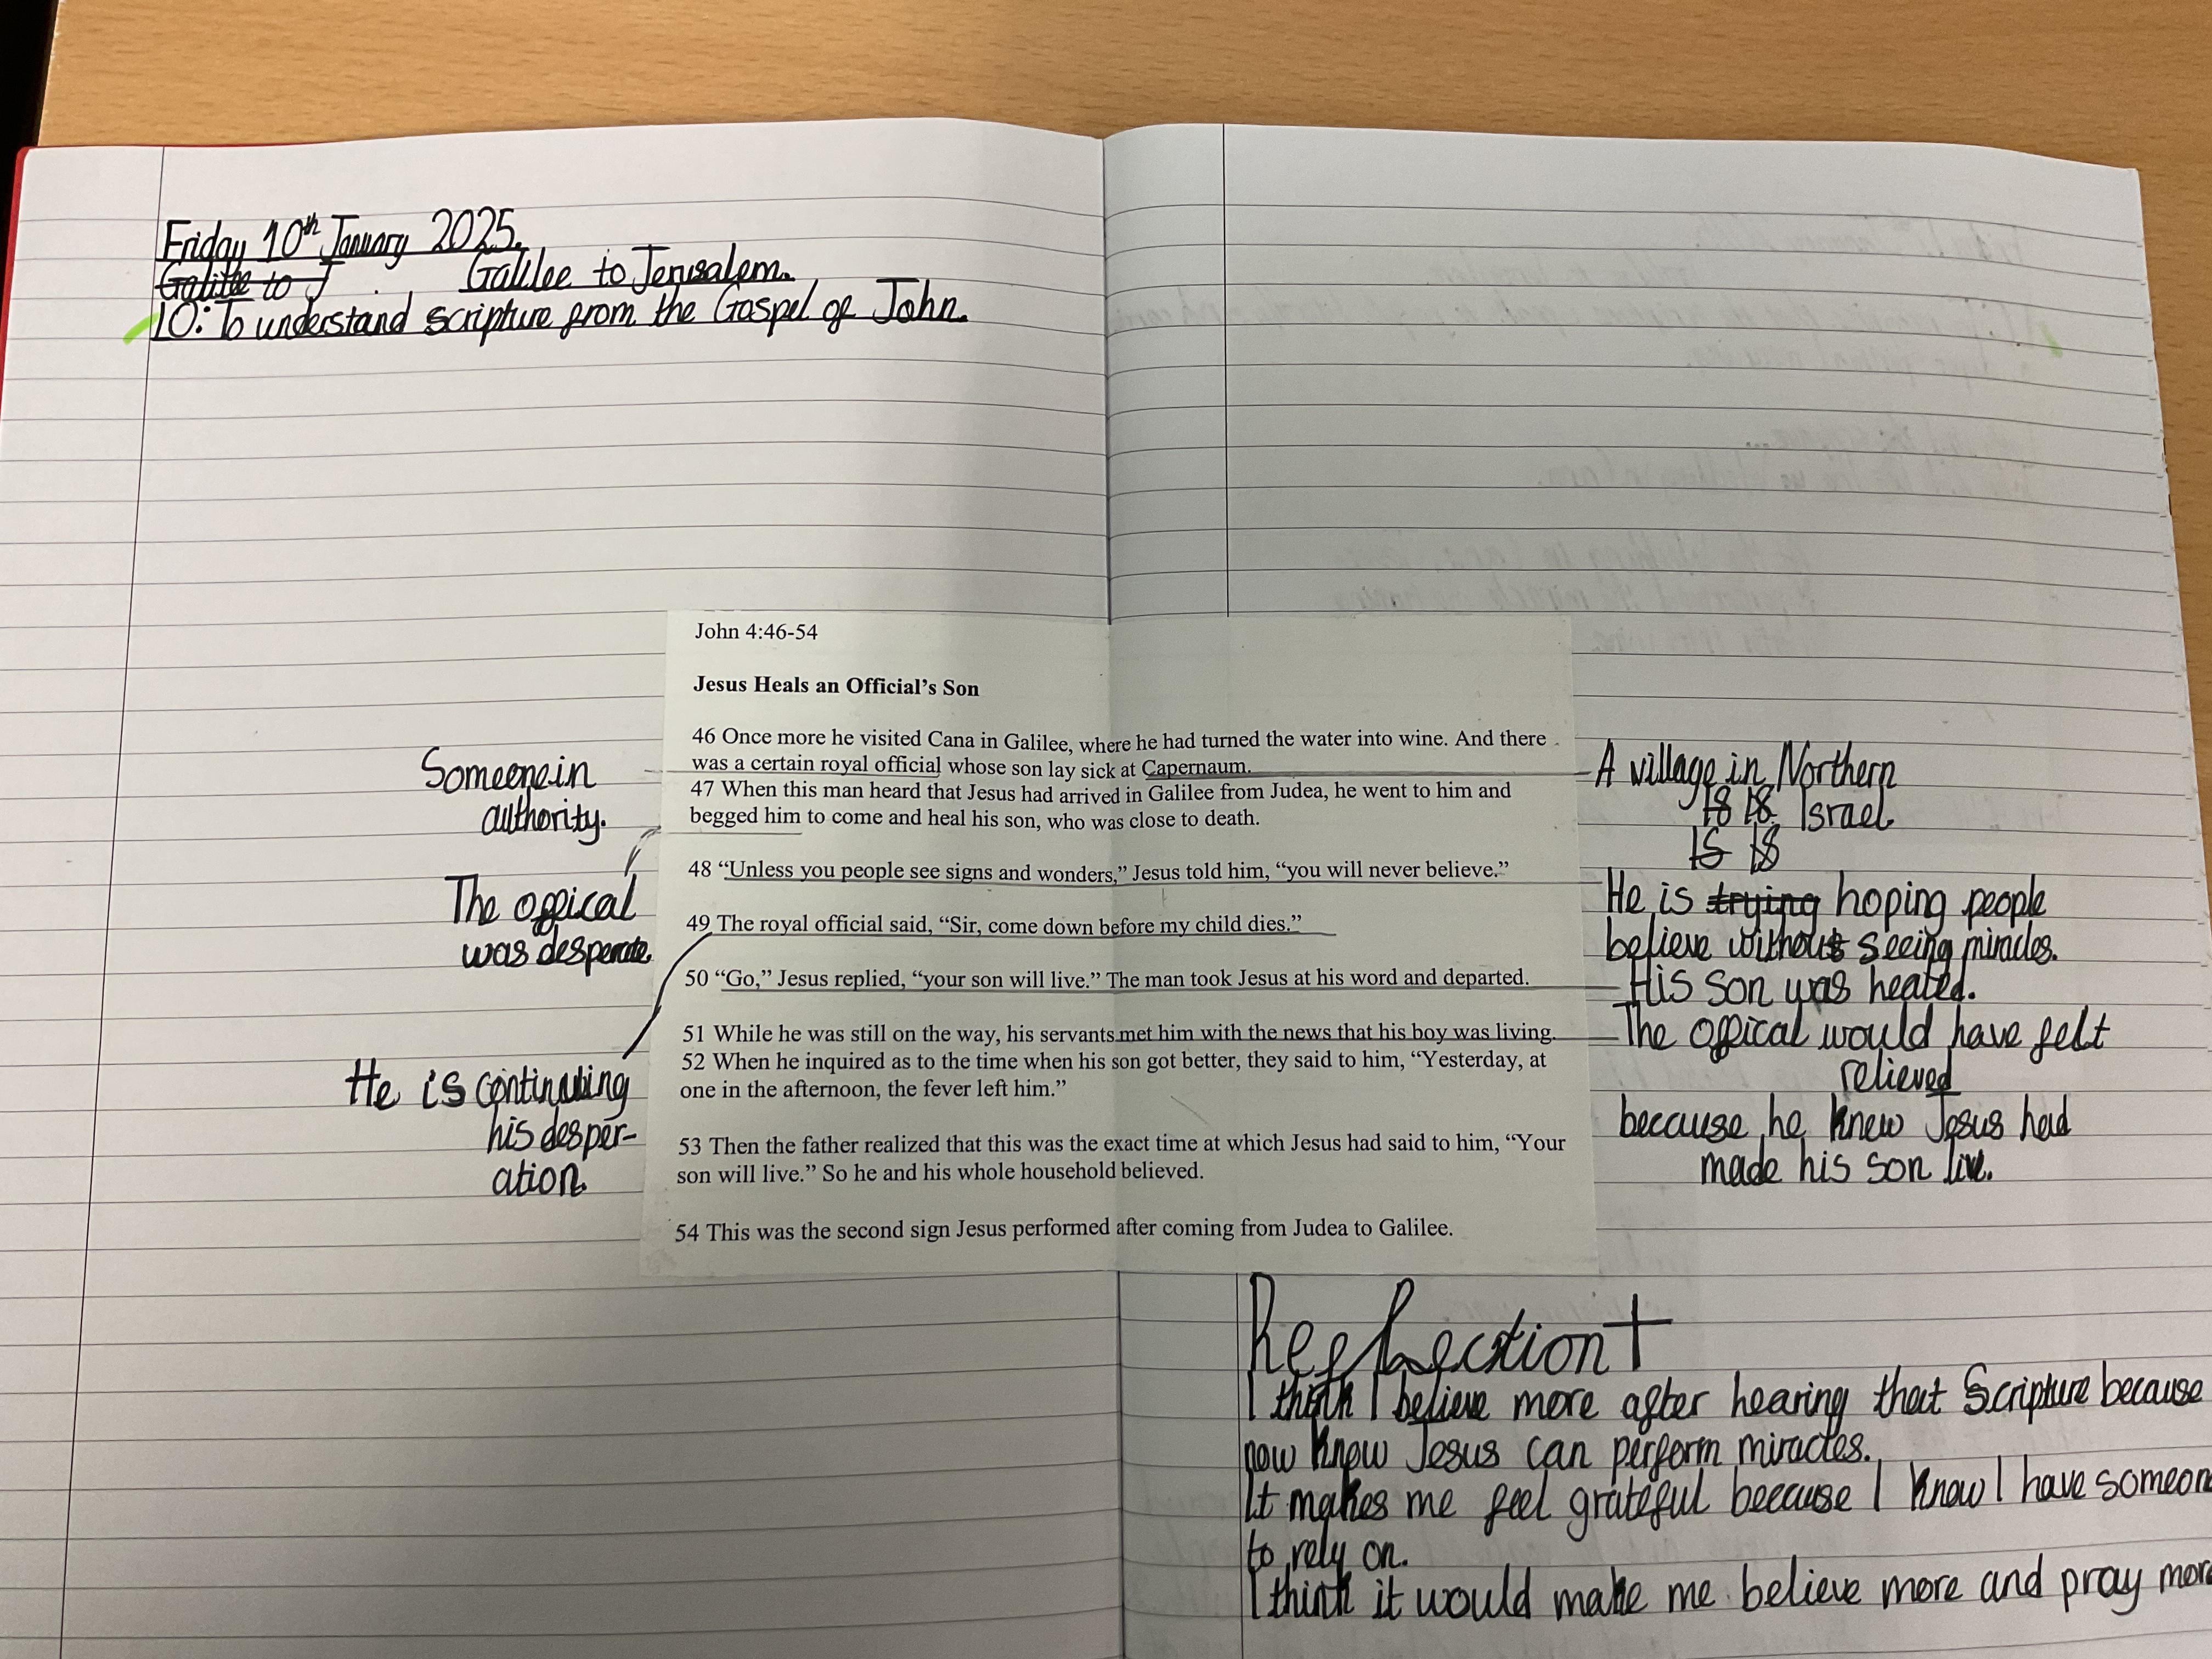 Friday 10th January 2025.
Galilee to J Galilee to Jerusalem.
LO: To understand scripture from the Gospel of John.
John 4:46-54
Jesus Heals an Official's Son
46 Once more he visited Cana in Galilee, where he had turned the water into wine. And there
was a certain royal official whose son lay sick at Capernaum.
47 When this man heard that Jesus had arrived in Galilee from Judea, he went to him and
begged him to come and heal his son, who was close to death.
48 “Unless you people see signs and wonders,” Jesus told him, “you will never believe.”
49 The royal official said, “Sir, come down before my child dies.”
50 “Go,” Jesus replied, “your son will live.” The man took Jesus at his word and departed.
51 While he was still on the way, his servants met him with the news that his boy was living.
52 When he inquired as to the time when his son got better, they said to him, “Yesterday, at
one in the afternoon, the fever left him.”
53 Then the father realized that this was the exact time at which Jesus had said to him, “Your
son will live.” So he and his whole household believed.
54 This was the second sign Jesus performed after coming from Judea to Galilee.
Someone in
authority.
The offical
was desperate.
He is continuing
his desper-
ation.
A village in Northern
Israel
He is trying hoping people
believe without seeing miracles.
His son was healed.
The offical would have felt
relieved
because he knew Jesus had
made his son live.
Reflection
I think I believe more after hearing that Scripture because
now know Jesus can perform miracles.
It makes me feel grateful because I know I have someone
to rely on.
I think it would make me believe more and pray more